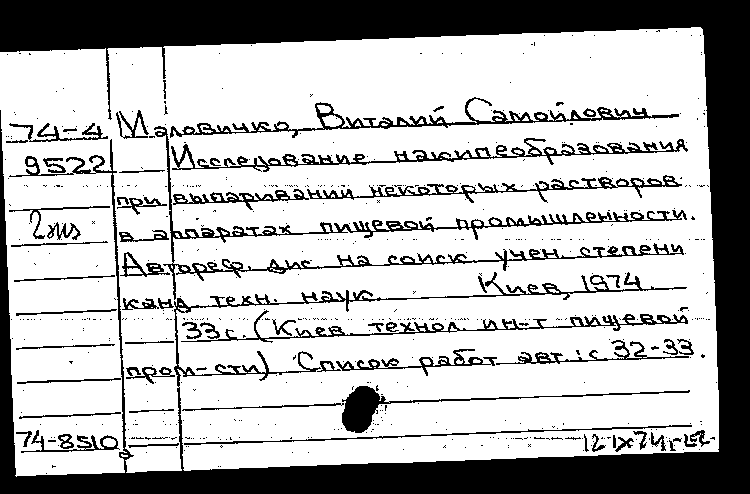 74-4 Маловичко, Виталий Самойлович
9522 Исследование накипеобразования
при выпаривании некоторых растворов
2 экз в аппаратах пищевой промышленности.
Автореф. дис. на соиск. учен. степени
канд. техн. наук. Киев, 1974.
33 с. (Киев. технол. ин-т пищевой
пром-сти). Список работ авт.: с. 32-33.
74-8510
12 IX 74 г.